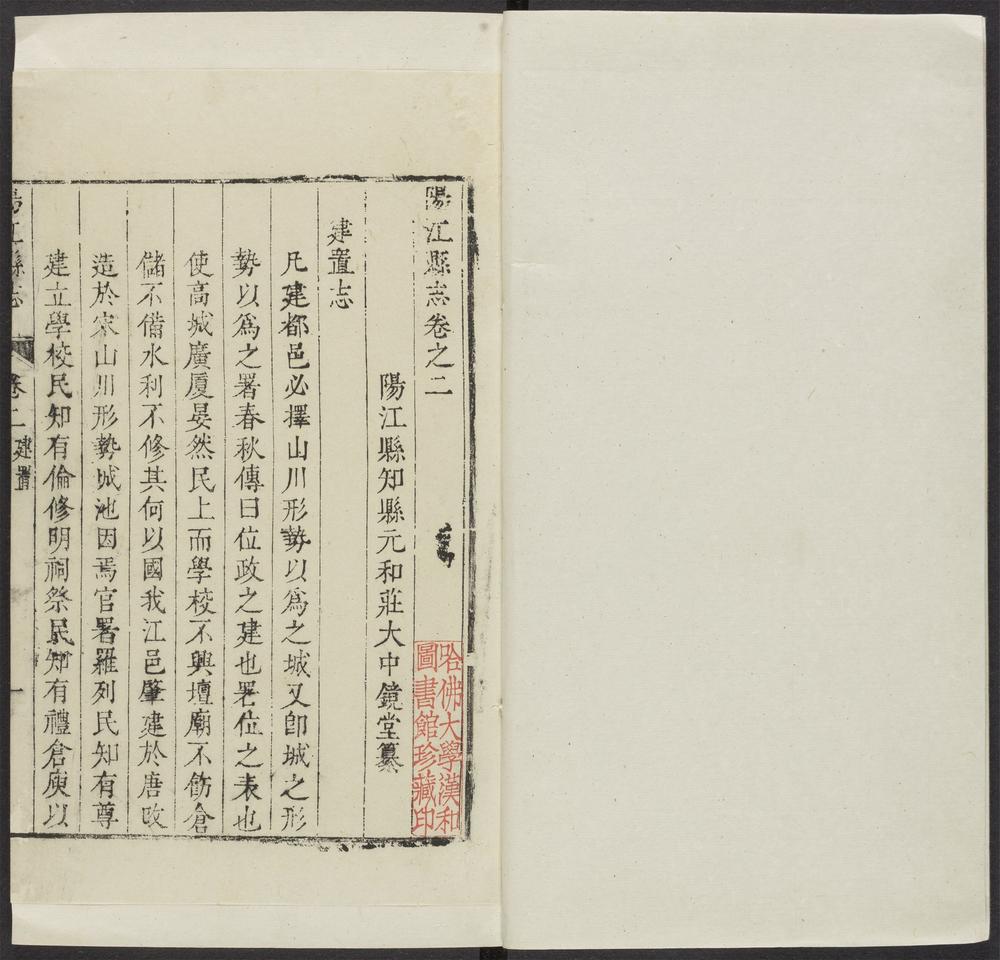 陽江縣志卷之二
哈佛大學漢和
圖書館珍藏印
陽江縣知縣元和莊大中鏡堂纂
建置志
凡建都邑必擇山川形勢以爲之城又卽城之形
勢以爲之署春秋傳曰位政之建也署位之表也
使高城廣厦晏然民上而學校不興壇廟不飭倉
儲不備水利不修其何以國我江邑肇建於唐改
造於宋山川形勢城池因焉官署羅列民知有尊
建立學校民知有倫修明祠祭民知有禮倉庾以
陽江縣志 卷二 建置 一